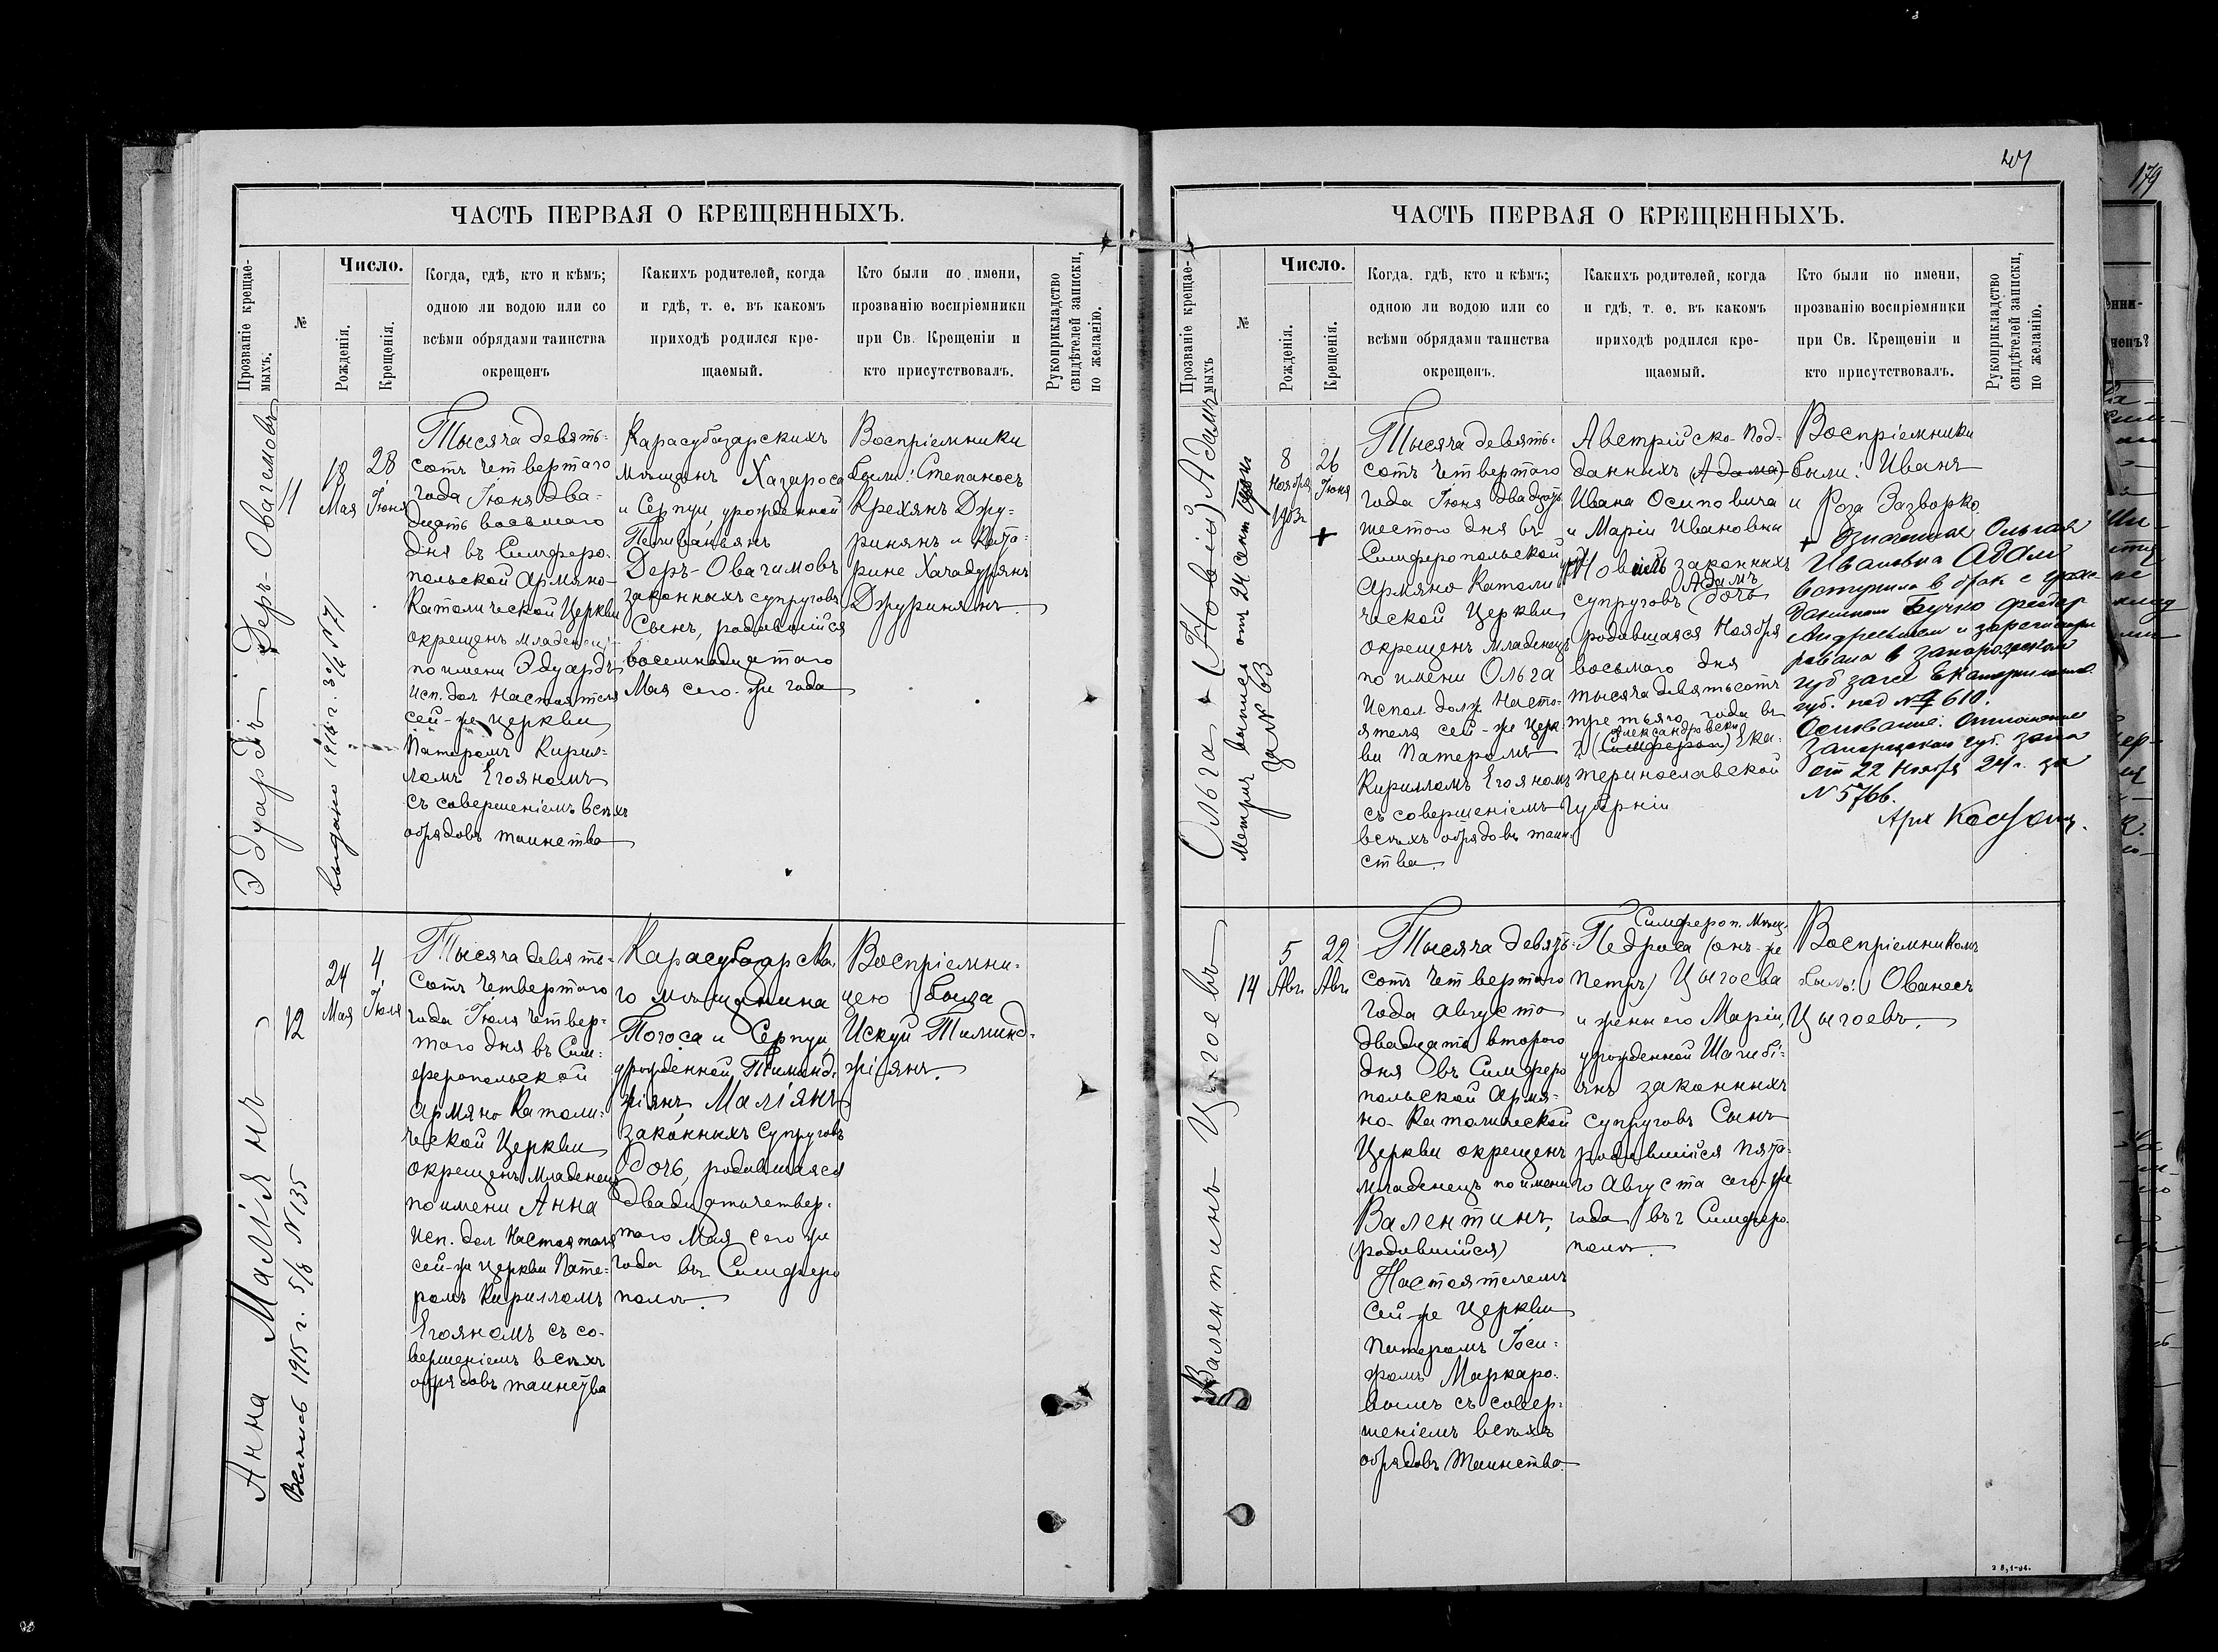 ЧАСТЬ ПЕРВАЯ О КРЕЩЕННЫХЪ.
Прозваніе крещае-
мыхъ.
№
Число.
Рожденія.
Крещенія.
Когда, гдѣ, кто и кѣмъ;
одною ли водою или со
всѣми обрядами таинства
окрещенъ
Какихъ родителей, когда
и гдѣ, т. е. въ какомъ
приходѣ родился кре-
щаемый.
Кто были по имени,
прозванію воспріемники
при Св. Крещеніи и
кто присутствовалъ.
Рукоприкладство
свидѣтелей записки,
по желанію.
Эдуардъ Деръ-Овагемовъ
11
выдано 1916 г. 31/ N 71
18
Мая
28
Іюня
Тысяча девять-
сотъ четвертаго
года Іюня два-
дцать восьмаго
дня въ Симферо-
польской Армяно-
Католической Церкви
окрещенъ младенецъ
по имени Эдуардъ
Исп. дол Настоятеля
сей-же церкви
Патеромъ Кирил-
ломъ Егояномъ
съ совершеніемъ всѣхъ
обрядовъ таинства
Карасубазарскихъ
мѣщанъ Хазароса
и Серпуи, урожденной
Пегливаньянъ
Деръ-Овагимовъ
законныхъ супруговъ
Сынъ, родившійся
восемнадцатаго
Мая сего-же года
Воспріемники
были: Степаносъ
Крехянъ Джу-
ринянъ и Ката-
рине Хачадурянъ
Джуринянъ.
Анна Маліянъ
12
Выпись 1915 г. 5/8 N 135
24
Мая
4
Іюля
Тысяча девять-
сотъ четвертаго
года Іюля четвер-
таго дня въ Сим-
феропольской
Армяно Католи-
ческой Церкви
окрещенъ Младенецъ
по имени Анна
Исп. дол Настоятеля
сей-же церкви Пате-
ромъ Кирилломъ
Егояномъ съ со-
вершеніемъ всѣхъ
обрядовъ таинства
Карасубазарска-
го мѣщанина
Погоса и Серпуи
урожденной Тиминд-
жіянъ, Маліянъ
законныхъ супруговъ
дочь, родившаяся
двадцатичетвер-
таго Мая сего же
года въ Симферо
полѣ.
Воспріемни-
цею была
Искуи Тиминд-
жіянъ.
ЧАСТЬ ПЕРВАЯ О КРЕЩЕННЫХЪ.
Прозваніе крещае-
мыхъ
№
Число.
Рожденія.
Крещенія.
Когда, гдѣ, кто и кѣмъ;
одною ли водою или со
всѣми обрядами таинства
окрещенъ.
Какихъ родителей, когда
и гдѣ, т. е. въ какомъ
приходѣ родился кре-
щаемый.
Кто были по имени,
прозванію воспріемники
при Св. Крещеніи и
кто присутствовалъ.
Рукоприкладство
свидѣтелей записки,
по желанію.
Ольга + (Новій) Адамъ
Метрич выпись отъ 24 сент
за № 63
8
Ноября
1903г
26
Іюня
+
Тысяча девять-
сотъ четвертаго
года Іюня двадцать
шестого дня въ
Симферопольской
Армяно-Католи
ческой Церкви
окрещенъ младенецъ
по имени Ольга
Испол. долж. Насто-
ятеля сей-же Церк-
ви Патеромъ
Кирилломъ Егояномъ
съ совершеніемъ
всѣхъ обрядовъ таин-
ства.
Австрійско-под-
данныхъ (Адама)
Ивана Осиповича
и Маріи Ивановны
ур Новій законныхъ
Адамъ
супруговъ дочь
родившаяся Ноября
восьмаго дня
тысяча девятьсотъ
третьяго года въ
Александровскѣ
г (Симфероп) Ека-
теринославской
Губерніи
Воспріемники
были: Иванъ
и Роза Зазворко.
+ Означенная Ольга
Ивановна Адамъ
вступила в брак с граж-
данином Бучко Федор
Андреевичем и зарегистри
рована в запорожском
губ загсе Екатеринослав.
губ. под № 610.
Основание: отношение
Запорожского губ. загса
от 22 Ноября 24 г. за
N 5766.
Арх
Валентинъ Цигоевъ
14
5
Авг.
22
Авг.
Тысяча девять-
сотъ четвертаго
года Августа
двадцать второго
дня въ Симферо
польской Армя-
но-Католической
Церкви окрещенъ
младенецъ по имени
Валентинъ,
(родившійся)
Настоятелемъ
сей-же церкви
Патеромъ Іоси-
фомъ Маркаро-
вымъ съ совер-
шеніемъ всѣхъ
обрядовъ таинства.
Симфероп. Мѣщ.
Педроса (онъ-же
Петръ) Цыгоева
и жены его Маріи,
урожденной Шагибі-
янъ законныхъ
супруговъ Сынъ
родившійся пята-
го Августа сего-же
года въ г Симферо-
полѣ.
Воспріемникомъ
былъ: Ованесъ
Цыгоевъ.
179